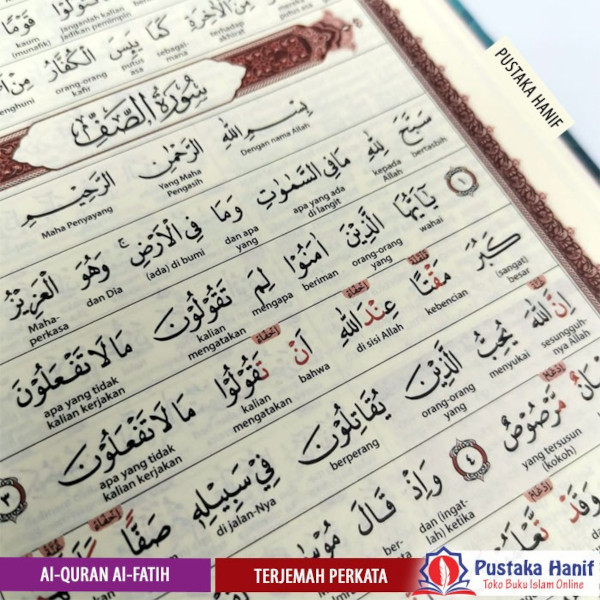 قَوْمًا
kaum
(munafik)
jangan kalian
jadikan pemimpin
terhadap
akhirat
مِنَ الْاٰخِرَةِ كَمَا يَىِٕسَ الْكُفَّارُ
orang-orang
kafir
putus
asa
sebagai-
mana
PUSTAKA HANIF
سُوْرَةُ الصَّفِّ
بِسْمِ اللّٰهِ الرَّحْمٰنِ الرَّحِيْمِ
Dengan nama Allah
Yang Maha
Pengasih
Maha Penyayang
سَبَّحَ لِلّٰهِ مَا فِى السَّمٰوٰتِ وَمَا فِى الْاَرْضِۚ وَهُوَ الْعَزِيْزُ
bertasbih
kepada
Allah
apa yang ada
di langit
dan apa
yang
(ada) di bumi
dan Dia
Maha-
perkasa
١
يٰٓاَيُّهَا الَّذِيْنَ اٰمَنُوْا لِمَ تَقُوْلُوْنَ مَا لَا تَفْعَلُوْنَ
wahai
orang-orang
yang
beriman
mengapa
kalian
mengatakan
apa yang tidak
kalian kerjakan
كَبُرَ مَقْتًا عِنْدَ اللّٰهِ اَنْ تَقُوْلُوْا مَا لَا تَفْعَلُوْنَ ٣
(sangat)
besar
kebencian
di sisi Allah
bahwa
kalian
mengatakan
apa yang tidak
kalian kerjakan
اِنَّ اللّٰهَ يُحِبُّ الَّذِيْنَ يُقَاتِلُوْنَ فِيْ سَبِيْلِهٖ صَفًّا
sesungguh-
nya Allah
menyukai
orang-orang
yang
berperang
di jalan-Nya
مَّرْصُوْصٌ ٤ وَاِذْ قَالَ
yang tersusun
(kokoh)
dan (ingat-
lah) ketika
وَقَدْ
Al-QURAN Al-FATIH
TERJEMAH PERKATA
Pustaka Hanif
Toko Buku Islam Online